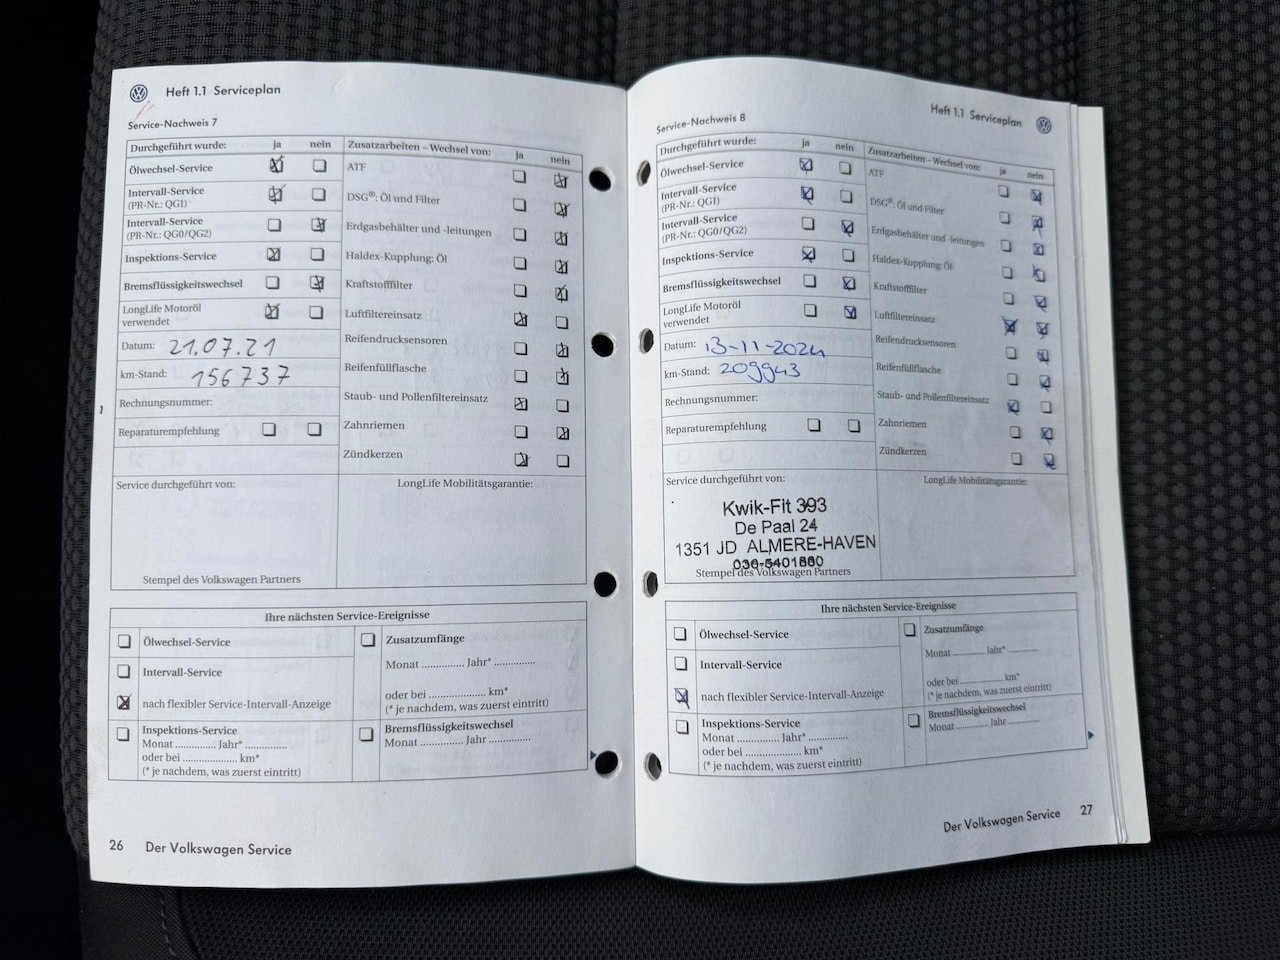 Heft 1.1 Serviceplan
Service-Nachweis 7
Durchgeführt wurde: ja nein
Ölwechsel-Service
Intervall-Service
(PR-Nr.: QG1)
Intervall-Service
(PR-Nr.: QG0/QG2)
Inspektions-Service
Bremsflüssigkeitswechsel
LongLife Motoröl
verwendet
Datum: 21.07.21
km-Stand: 156737
Rechnungsnummer:
Reparaturempfehlung
Zusatzarbeiten – Wechsel von: ja nein
ATF
DSG®: Öl und Filter
Erdgasbehälter und -leitungen
Haldex-Kupplung: Öl
Kraftstofffilter
Luftfiltereinsatz
Reifendrucksensoren
Reifenfüllflasche
Staub- und Pollenfiltereinsatz
Zahnriemen
Zündkerzen
Service durchgeführt von:
Stempel des Volkswagen Partners
LongLife Mobilitätsgarantie:
Ihre nächsten Service-Ereignisse
Ölwechsel-Service
Intervall-Service
nach flexibler Service-Intervall-Anzeige
Inspektions-Service
Monat .............. Jahr* ..............
oder bei .................... km*
(* je nachdem, was zuerst eintritt)
Zusatzumfänge
Monat .............. Jahr* ..............
oder bei .................... km*
(* je nachdem, was zuerst eintritt)
Bremsflüssigkeitswechsel
Monat .............. Jahr ..............
26 Der Volkswagen Service
Heft 1.1 Serviceplan
Service-Nachweis 8
Durchgeführt wurde: ja nein
Ölwechsel-Service
Intervall-Service
(PR-Nr.: QG1)
Intervall-Service
(PR-Nr.: QG0/QG2)
Inspektions-Service
Bremsflüssigkeitswechsel
LongLife Motoröl
verwendet
Datum: 13-11-2024
km-Stand: 209943
Rechnungsnummer:
Reparaturempfehlung
Zusatzarbeiten – Wechsel von: ja nein
ATF
DSG®: Öl und Filter
Erdgasbehälter und -leitungen
Haldex-Kupplung: Öl
Kraftstofffilter
Luftfiltereinsatz
Reifendrucksensoren
Reifenfüllflasche
Staub- und Pollenfiltereinsatz
Zahnriemen
Zündkerzen
Service durchgeführt von:
Kwik-Fit 393
De Paal 24
1351 JD ALMERE-HAVEN
Stempel des Volkswagen Partners
LongLife Mobilitätsgarantie:
Ihre nächsten Service-Ereignisse
Ölwechsel-Service
Intervall-Service
nach flexibler Service-Intervall-Anzeige
Inspektions-Service
Monat .............. Jahr* ..............
oder bei .................... km*
(* je nachdem, was zuerst eintritt)
Zusatzumfänge
Monat .............. Jahr* ..............
oder bei .................... km*
(* je nachdem, was zuerst eintritt)
Bremsflüssigkeitswechsel
Monat .............. Jahr ..............
Der Volkswagen Service 27